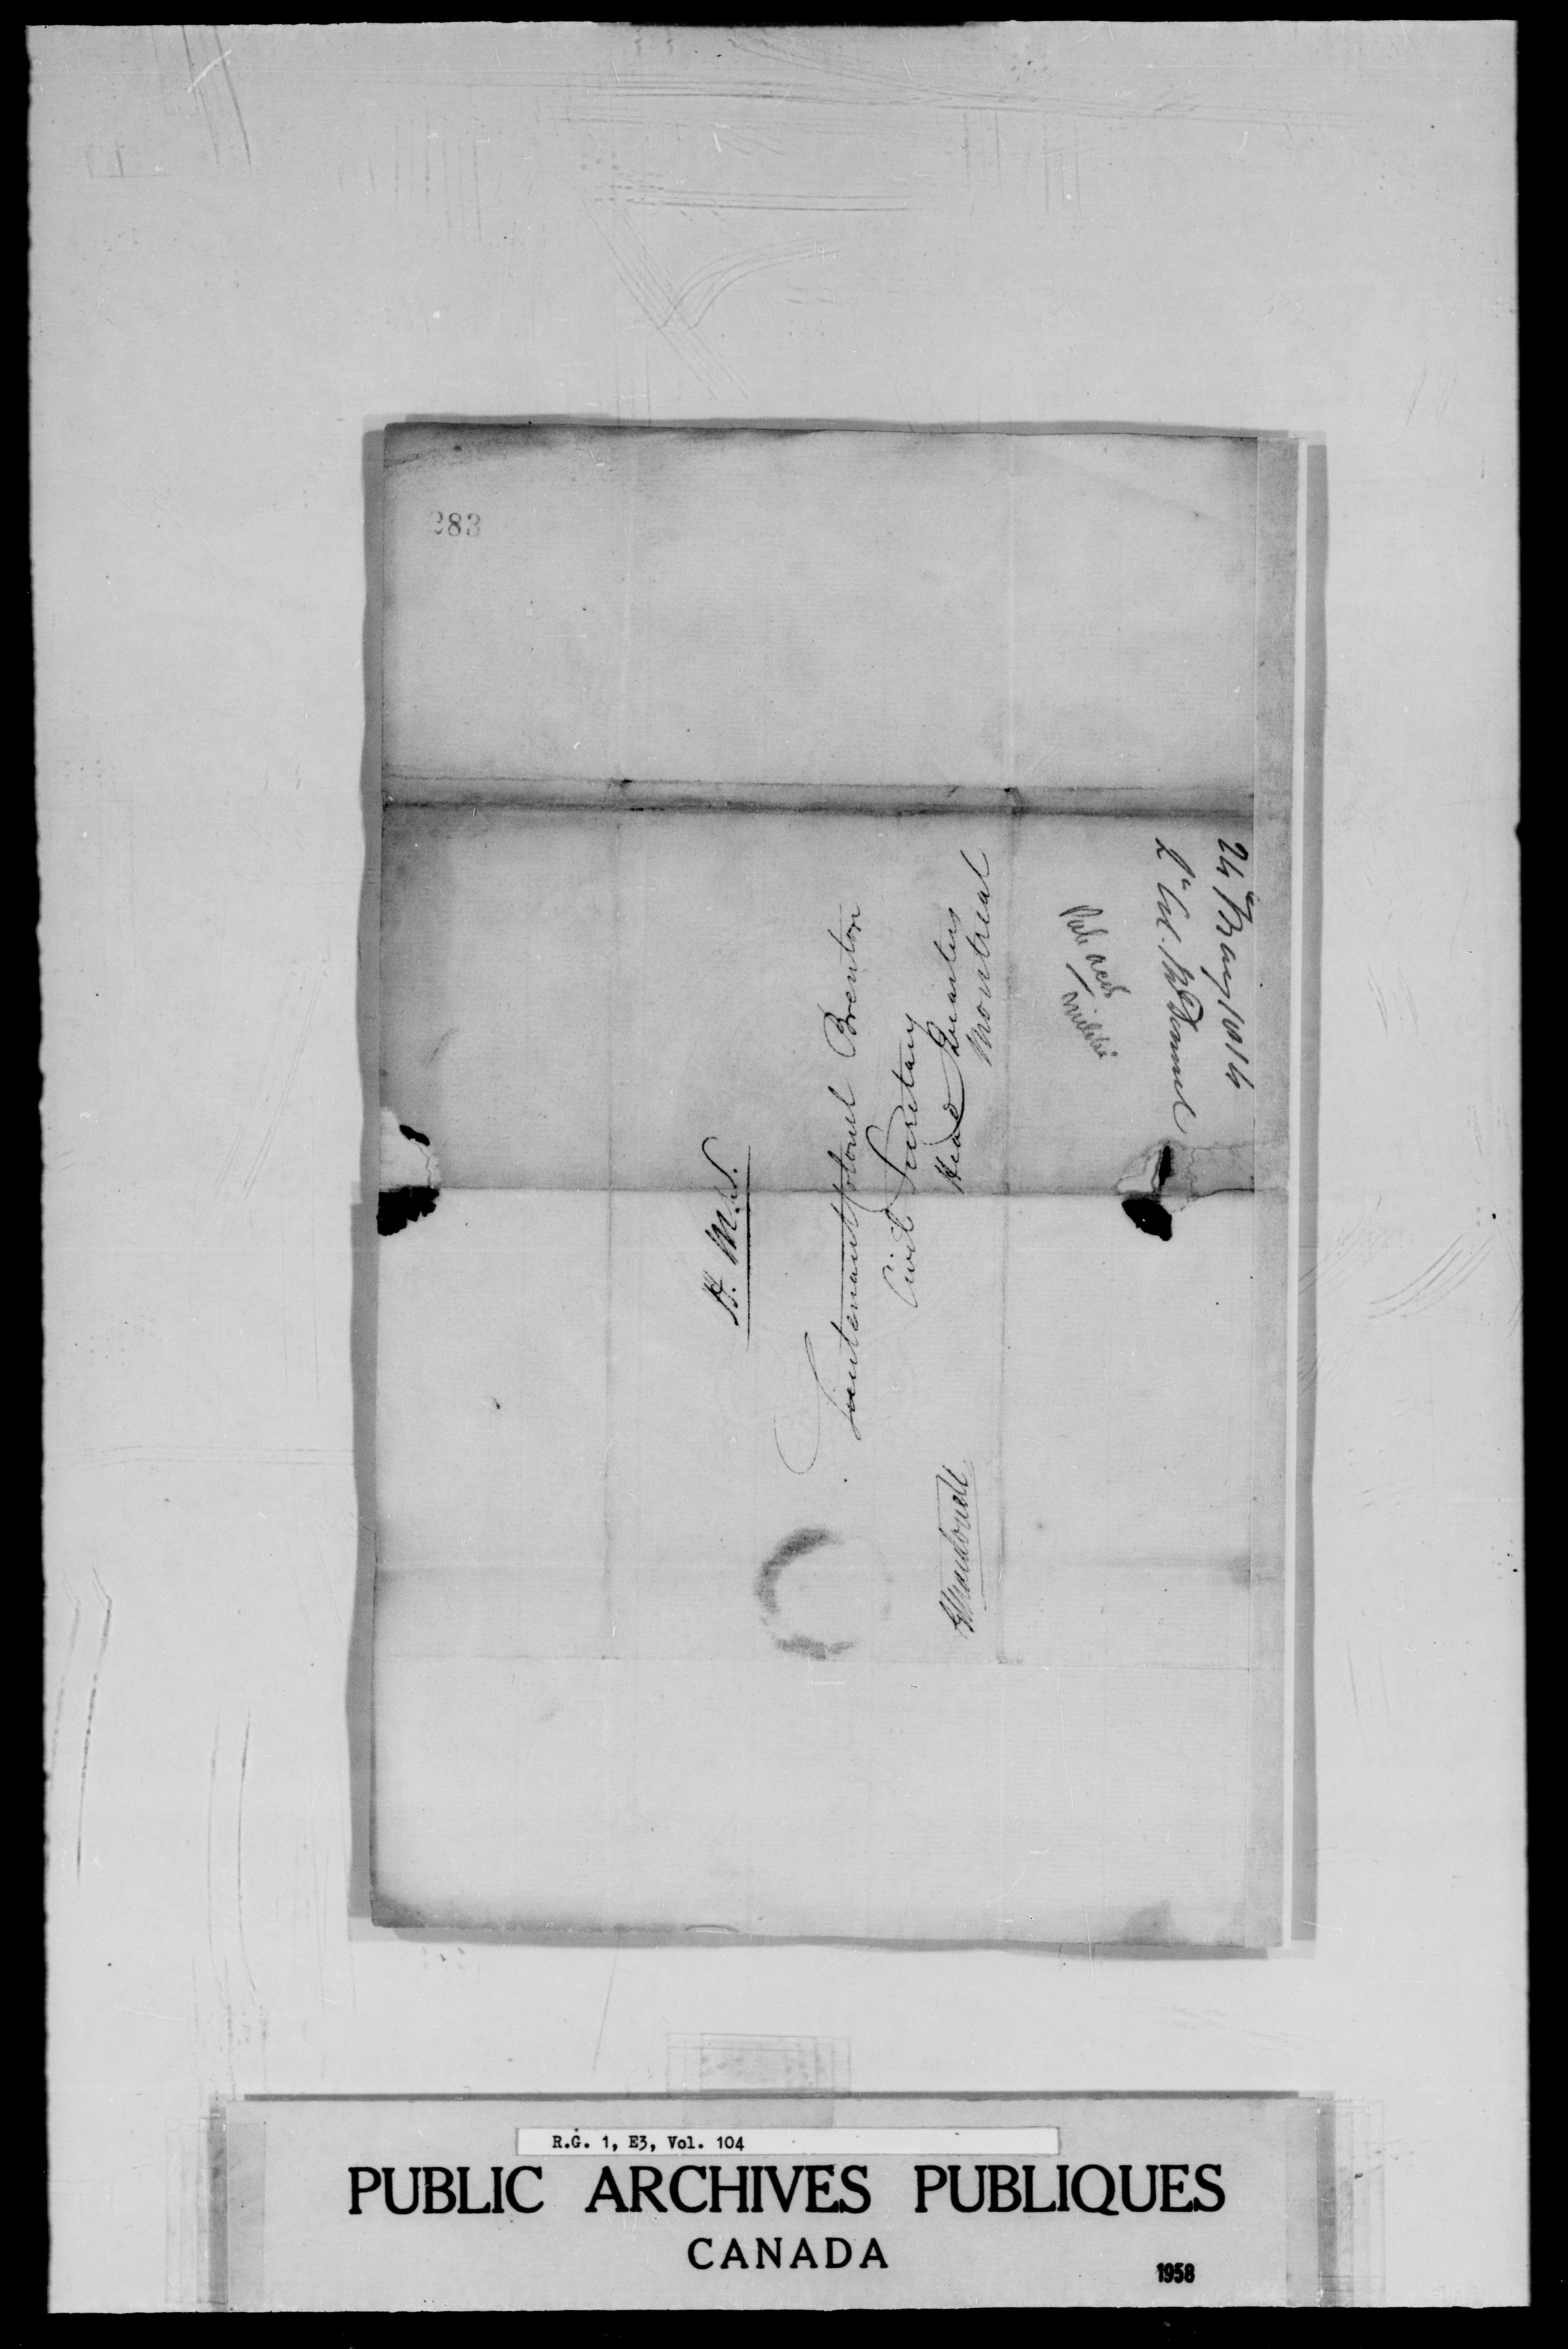 283
H. M. S.
Lieutenant Colonel Brenton
Civil Secretary
Head Quarters
Montreal
GMacdonell
24 May 1814
Lt Col. McDonnell
Pub accts
militia
R.G. 1, E3, Vol. 104
PUBLIC ARCHIVES PUBLIQUES
CANADA
1958